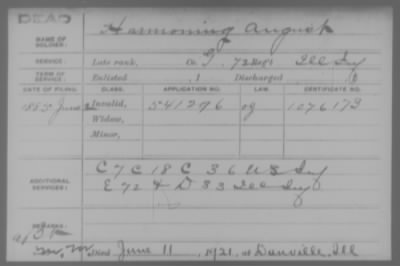 DEAD
NAME OF SOLDIER: Harmoning August
SERVICE: Late rank, Co. G, 72 Reg't Ill Inf
TERM OF SERVICE: Enlisted , 1 Discharged , 1
DATE OF FILING. CLASS. APPLICATION NO. LAW. CERTIFICATE NO.
1885 June Invalid, 541296 1076173
Widow,
Minor,
ADDITIONAL SERVICES: C 7 C 18 C 36 US Inf
E 72 & D 33 Ill Inf
REMARKS:
Died June 11, 1921, at Danville, Ill